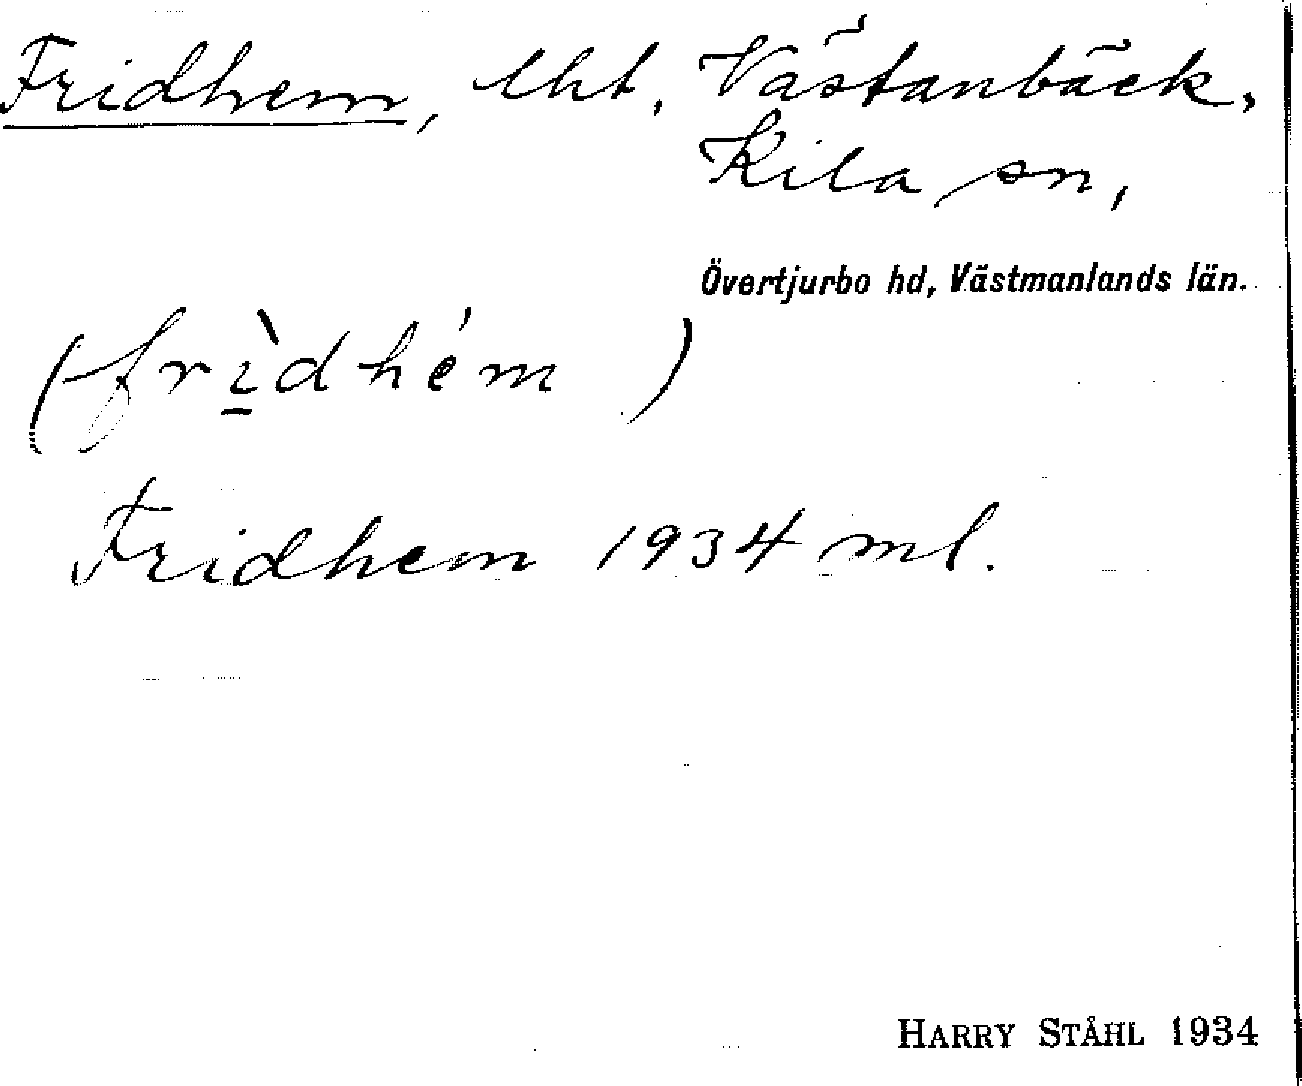 Fridhem, lht, Västanbäck,
Kila sn,
Övertjurbo hd, Västmanlands län.
(frì̲dhém )
Fridhem 1934 ml.
HARRY STÅHL 1934